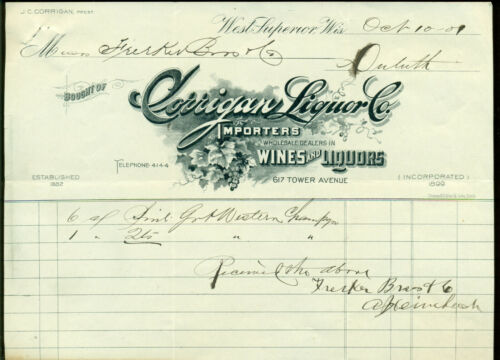 J.C. CORRIGAN, PREST.
West Superior, Wis. Oct 10-01
Messrs Frerker Bros & Co
Duluth
BOUGHT OF
Corrigan Liquor Co.
IMPORTERS
WHOLESALE DEALERS IN
WINES AND LIQUORS
TELEPHONE 4144
617 TOWER AVENUE
ESTABLISHED
1882
(INCORPORATED)
1899
6 Great Western Champg
1 " " "
Received the above
Frerker Bros & Co